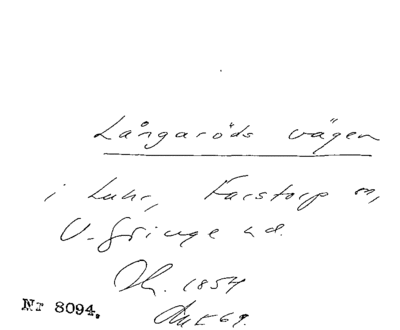 Långaröds vägen
i Luhr, Farstorp sn,
V. Göinge hd.
Dh. 1854
Nr 8094.